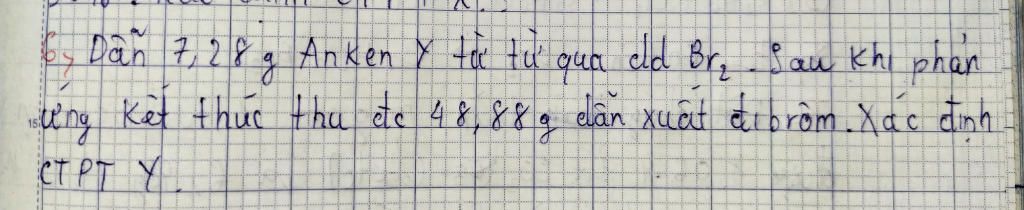 6, Dẫn 7,28g Anken Y từ từ qua dd Br₂. Sau khi phản
ứng kết thúc thu đc 48,88g dẫn xuất đibrôm. Xác định
CTPT Y.